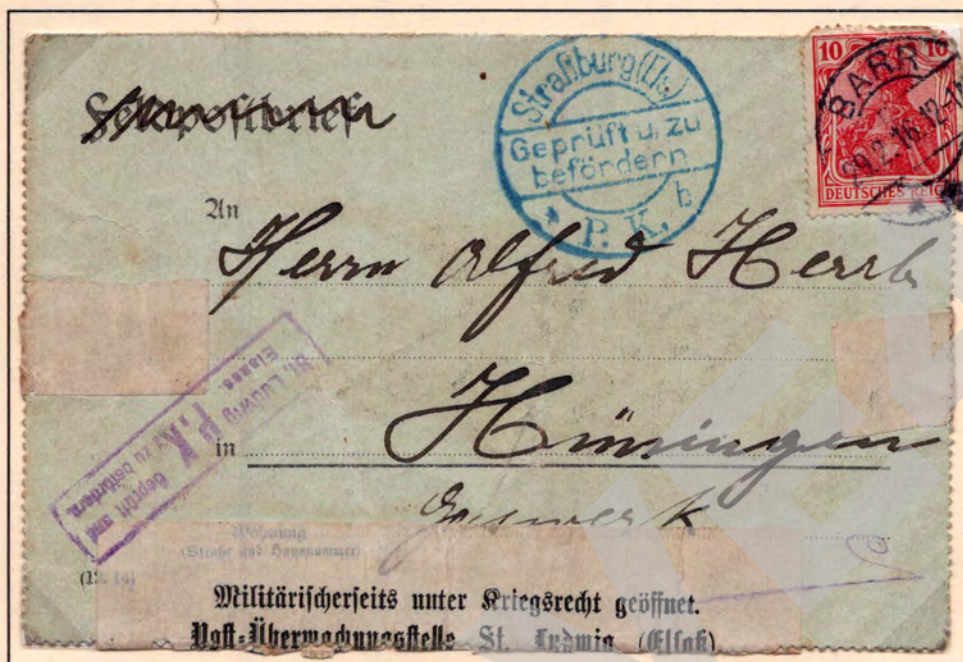 Feldpostbrief
Straßburg (Els)
Geprüft u. zu
befördern
* P. K. b
10 10
DEUTSCHES REICH
BARR
29.2.16.12-1
An
Herrn Alfred
St. Ludwig
Elsass
P. K.
Geprüft und
zu befördern.
in Hüningen
Gaswerk
Wohnung
(Straße und Hausnummer)
(12. 14)
Militärischerseits unter Kriegsrecht geöffnet.
Post-Überwachungsstelle St. Ludwig (Elsaß)